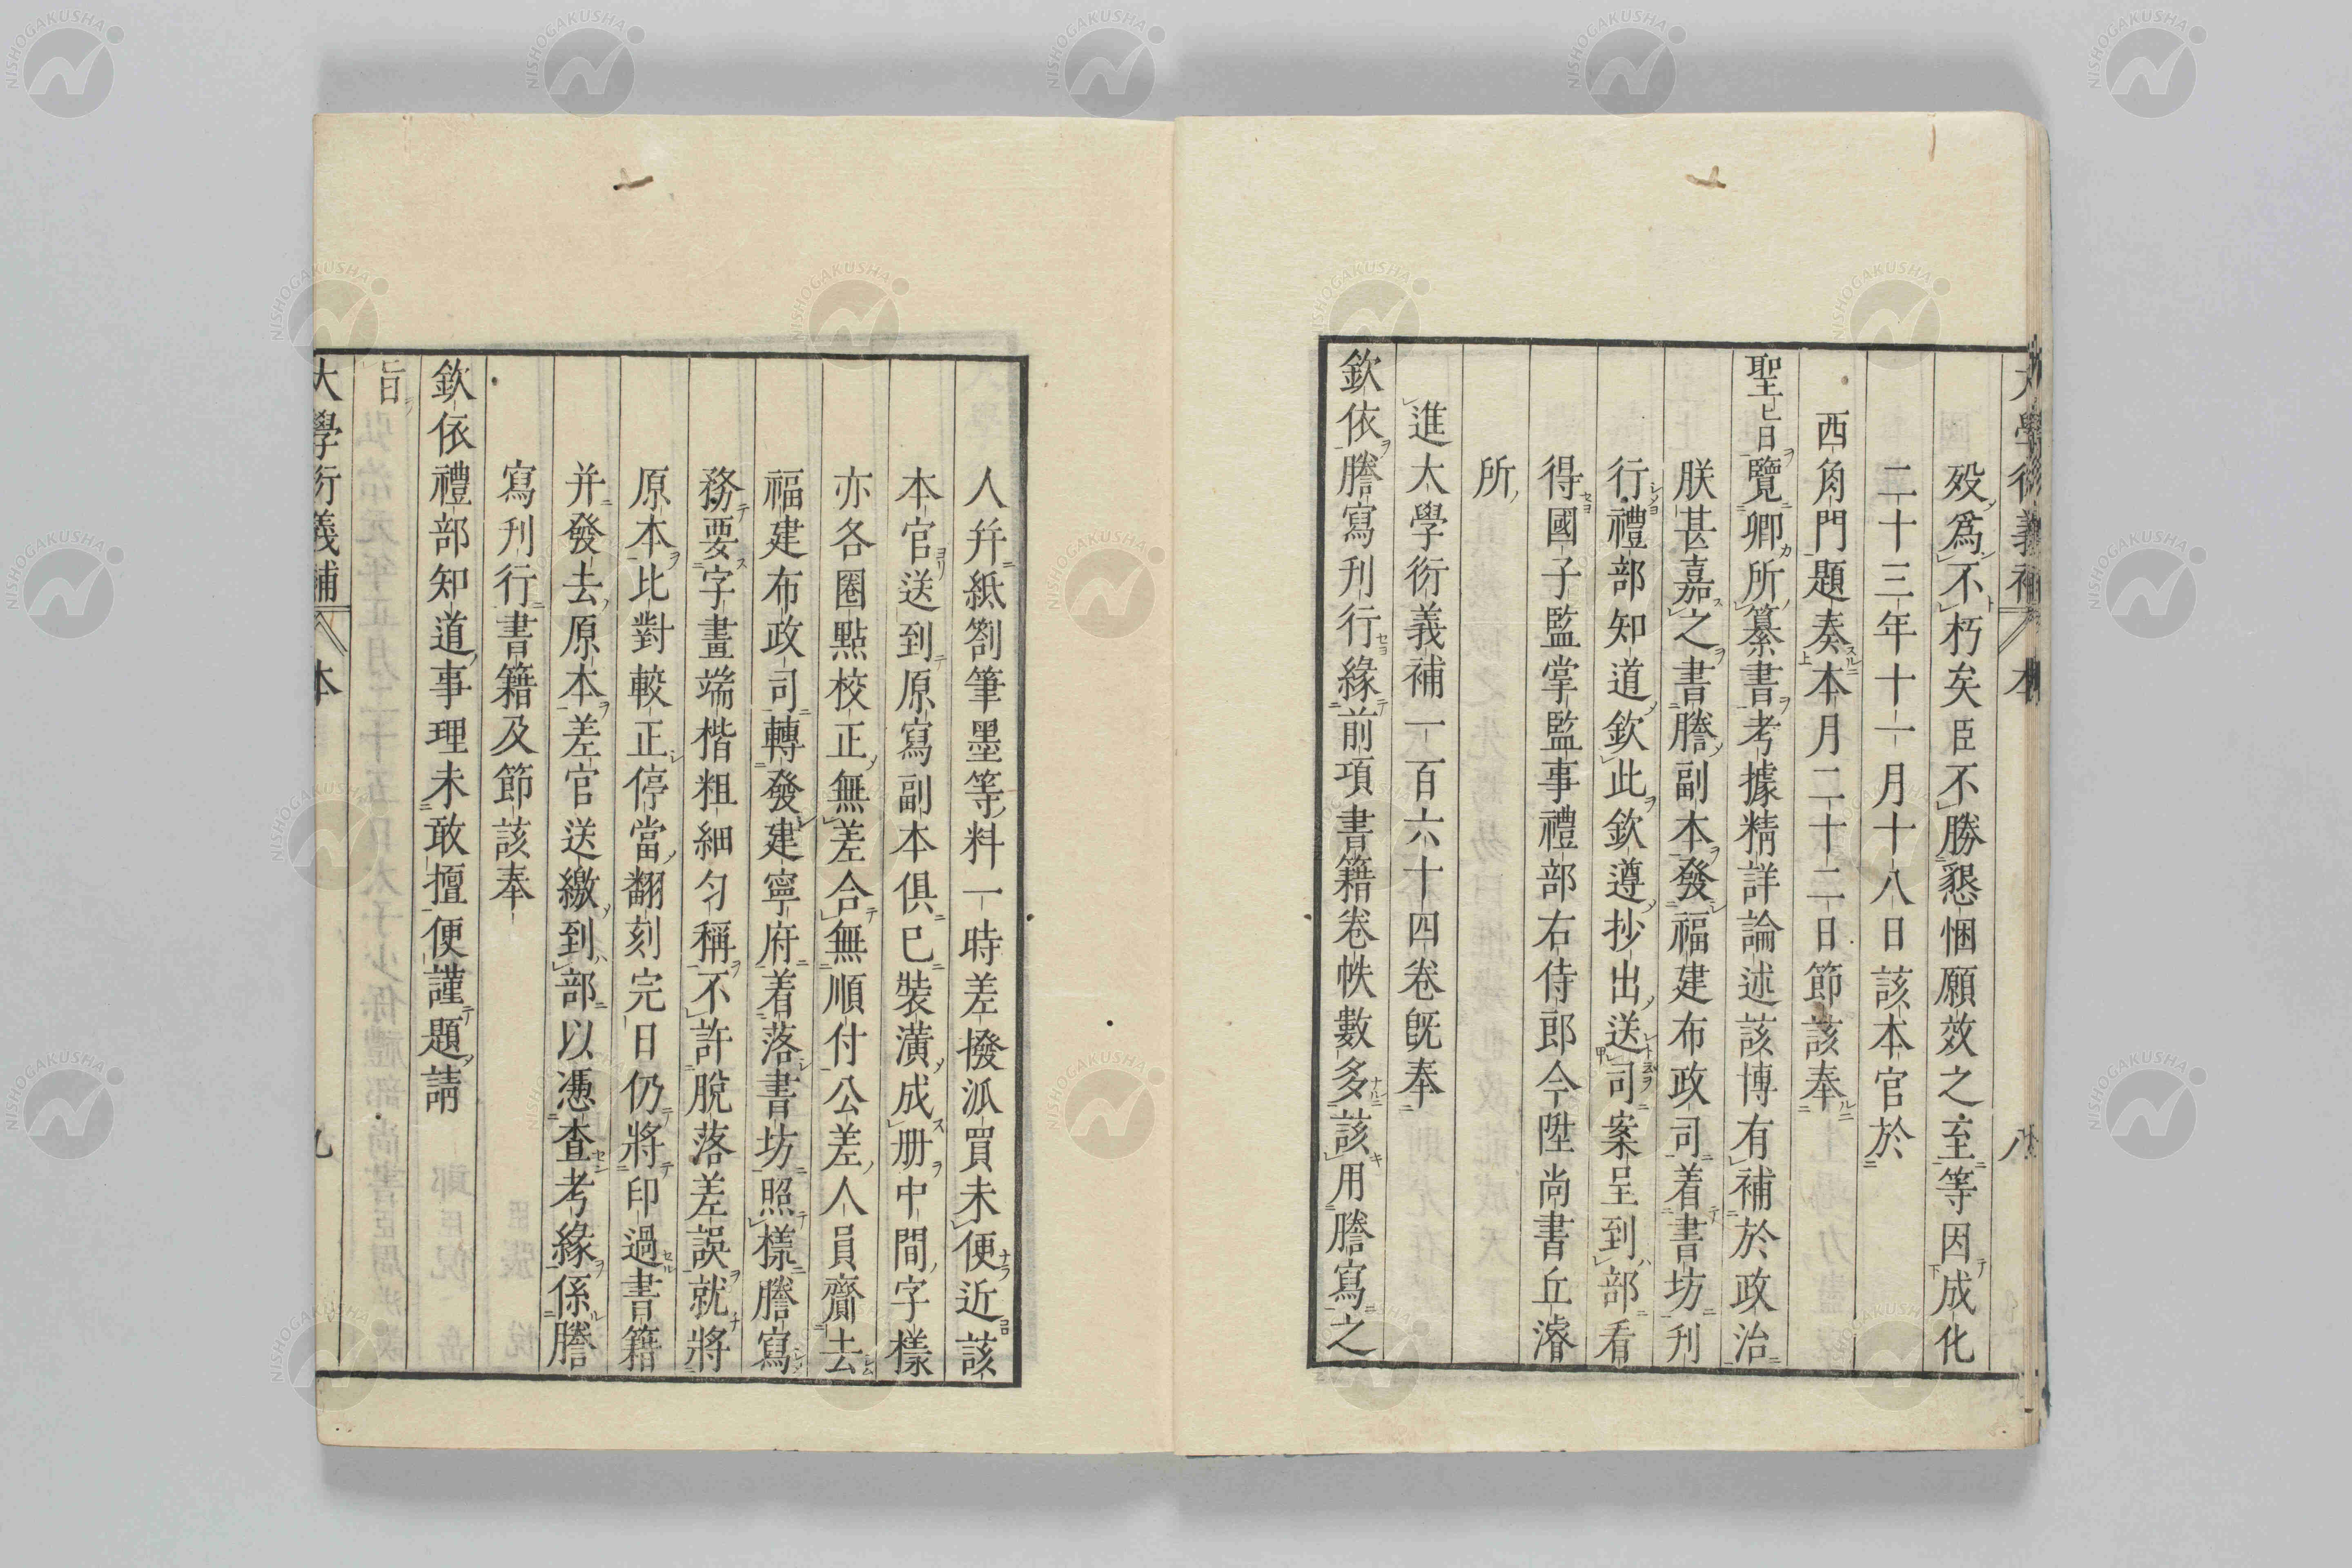 大學衍義補 本 八
殁爲不朽矣臣不勝懇悃願效之至等因成化
二十三年十一月十八日該本官於
西角門題奏本月二十二日節該奉
聖旨覽卿所纂書考據精詳論述該博有補於政治
朕甚嘉之書謄副本發福建布政司着書坊刊
行禮部知道欽此欽遵抄出送司案呈到部看
得國子監掌監事禮部右侍郎今陞尚書丘濬
所
進大學衍義補一百六十四卷旣奉
欽依謄寫刊行緣前項書籍卷帙數多該用謄寫之
人幷紙劄筆墨等料一時差撥派買未便近該
本官送到原寫副本俱已裝潢成册中間字樣
亦各圈點校正無差合無順付公差人員齎去
福建布政司轉發建寧府着落書坊照樣謄寫
務要字畫端楷粗細匀稱不許脫落差誤就將
原本比對較正停當翻刻完日仍將印過書籍
并發去原本差官送繳到部以憑查考緣係謄
寫刊行書籍及節該奉
欽依禮部知道事理未敢擅便謹題請
旨
大學衍義補 本 九
NISHOGAKUSHA